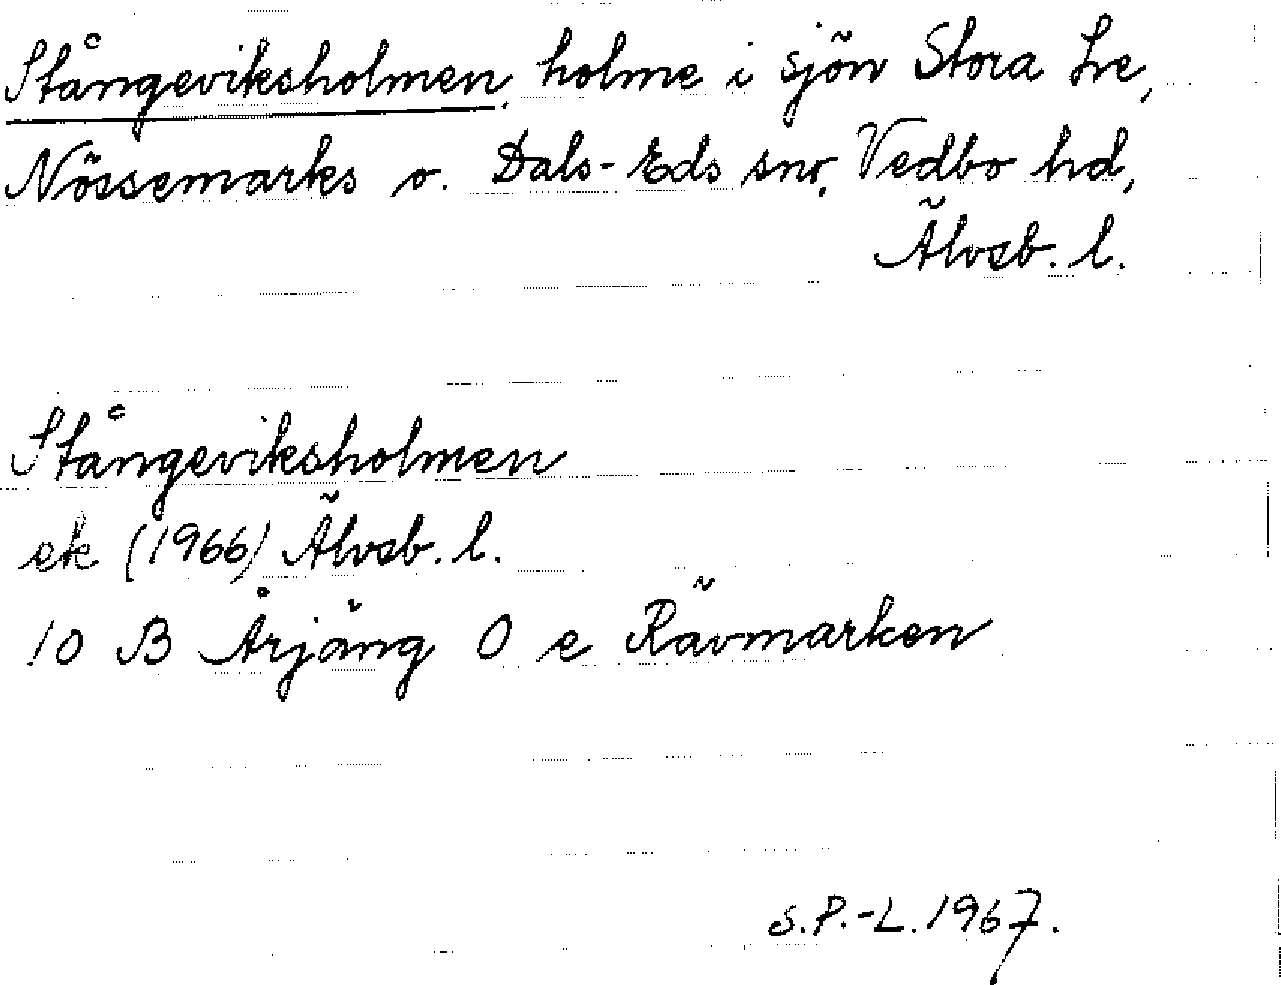 Stångeviksholmen, holme i sjön Stora Le,
Nössemarks o. Dals-Eds snr, Vedbo hd,
Älvsb. l.
Stångeviksholmen
ek (1966) Älvsb. l.
10 B Årjäng O e Rävmarken
S.P.-L. 1967.